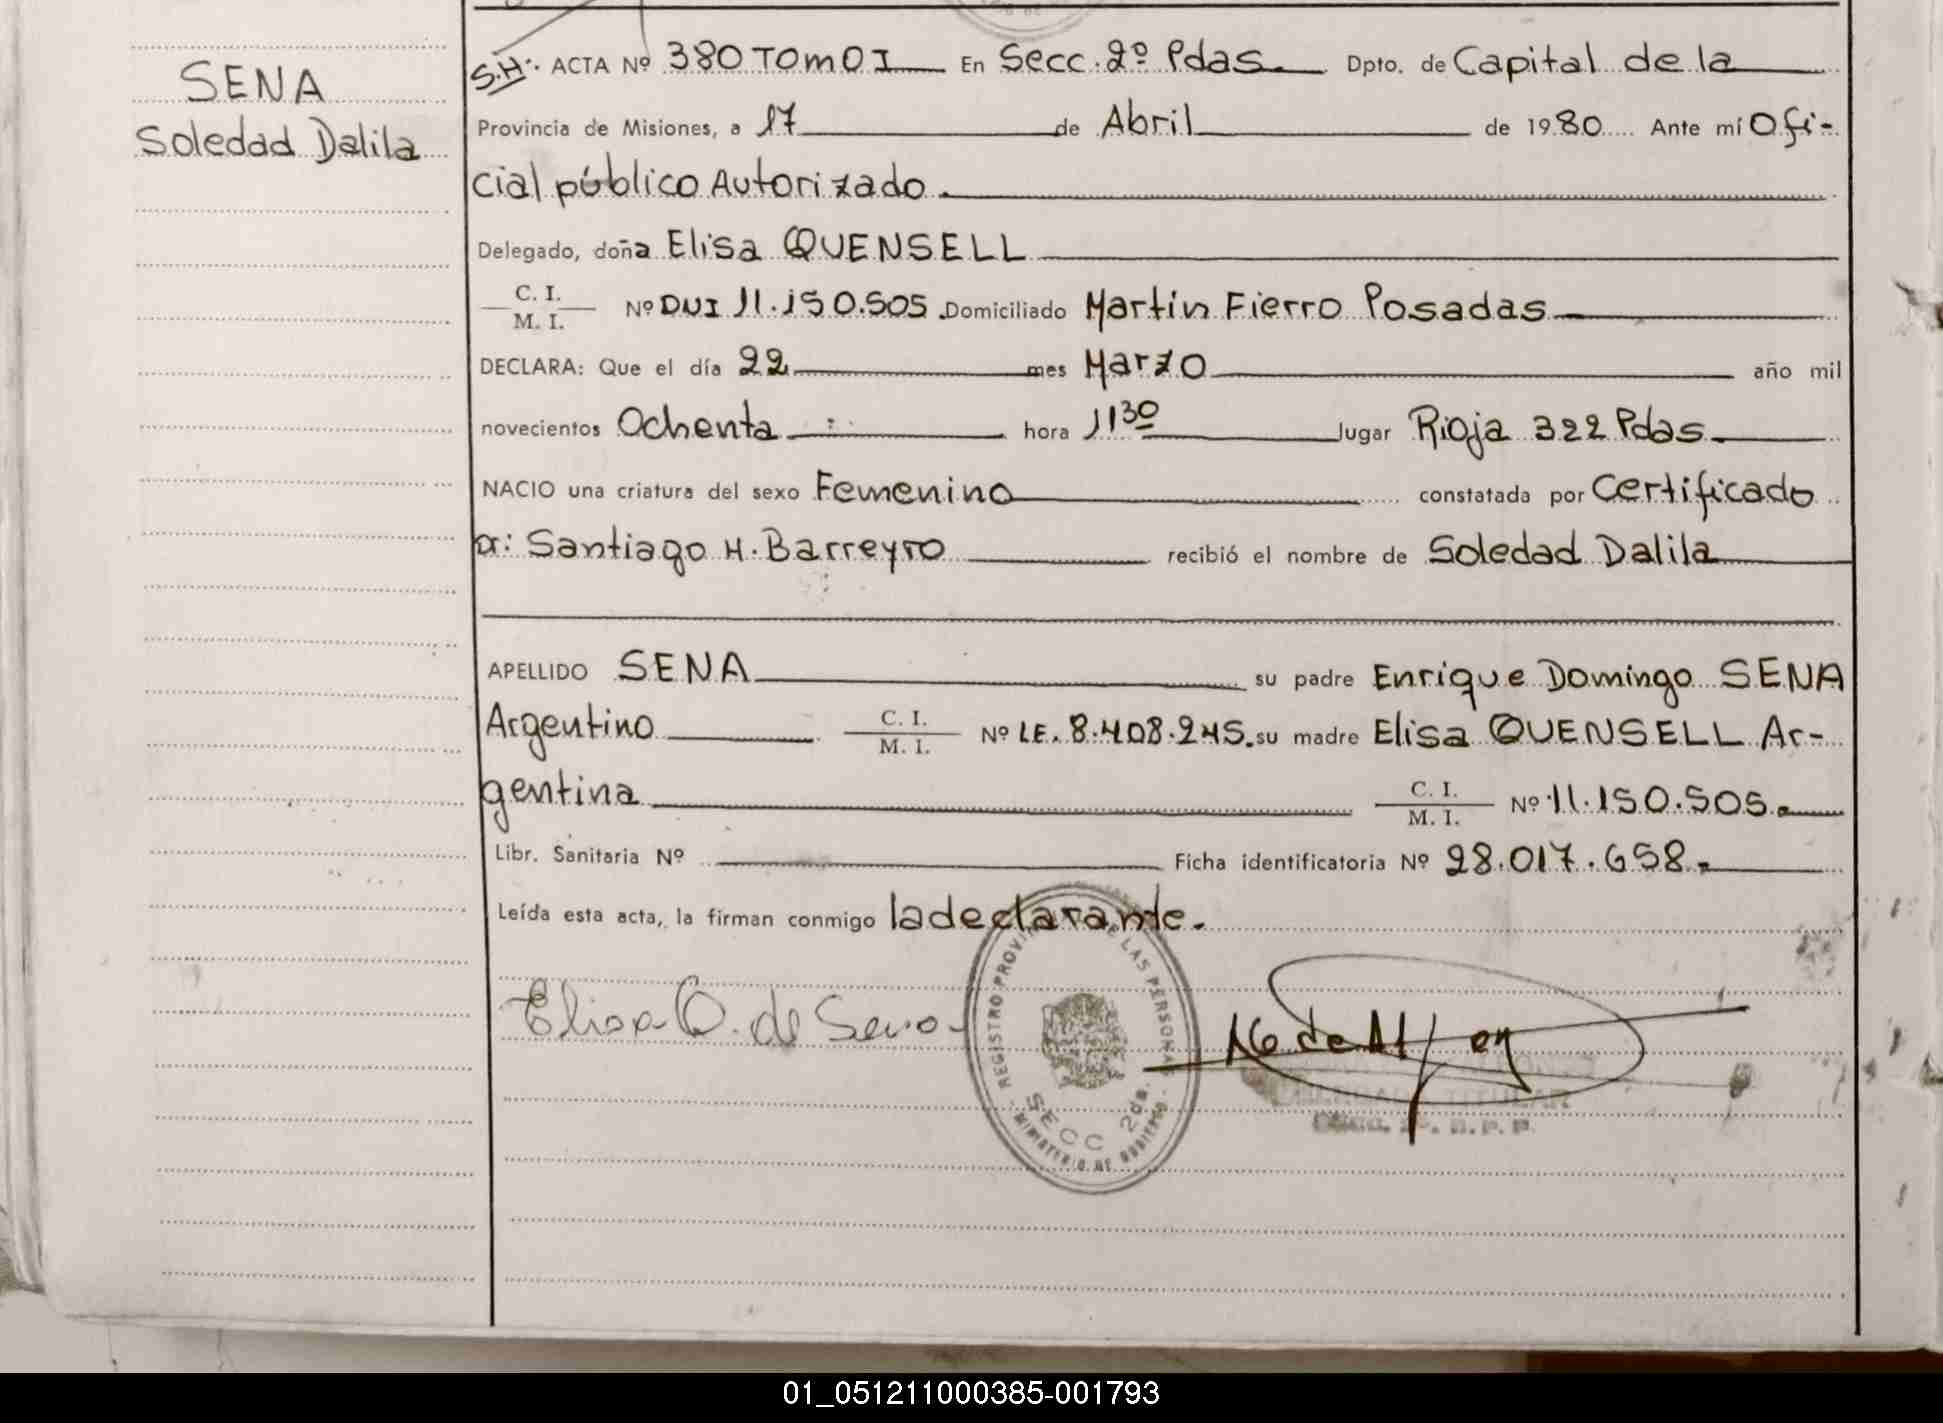 SENA
Soledad Dalila
S.H. ACTA Nº 380 TOMO I En Secc. 2º Pdas. Dpto. de Capital de la
Provincia de Misiones, a 17 de Abril de 1980 Ante mí Ofi-
cial público Autorizado.
Delegado, doña Elisa QUENSELL
C. I.
M. I. Nº DUI 11.150.505 Domiciliado Martin Fierro Posadas
DECLARA: Que el día 22 mes Marzo año mil
novecientos Ochenta hora 11 30 lugar Rioja 322 Pdas.
NACIO una criatura del sexo Femenino constatada por Certificado
Santiago H. Barreyro recibió el nombre de Soledad Dalila
APELLIDO SENA su padre Enrique Domingo SENA
Argentino C. I. M. I. Nº LE. 8.408.245. su madre Elisa QUENSELL Ar-
gentina C. I. M. I. Nº 11.150.505.
Libr. Sanitaria Nº Ficha identificatoria Nº 28.017.658.
Leída esta acta, la firman conmigo la declarante.
Elisa Q. de Sena
REGISTRO PROVINCIAL DE LAS PERSONAS
SECC 2da.
01_051211000385-001793